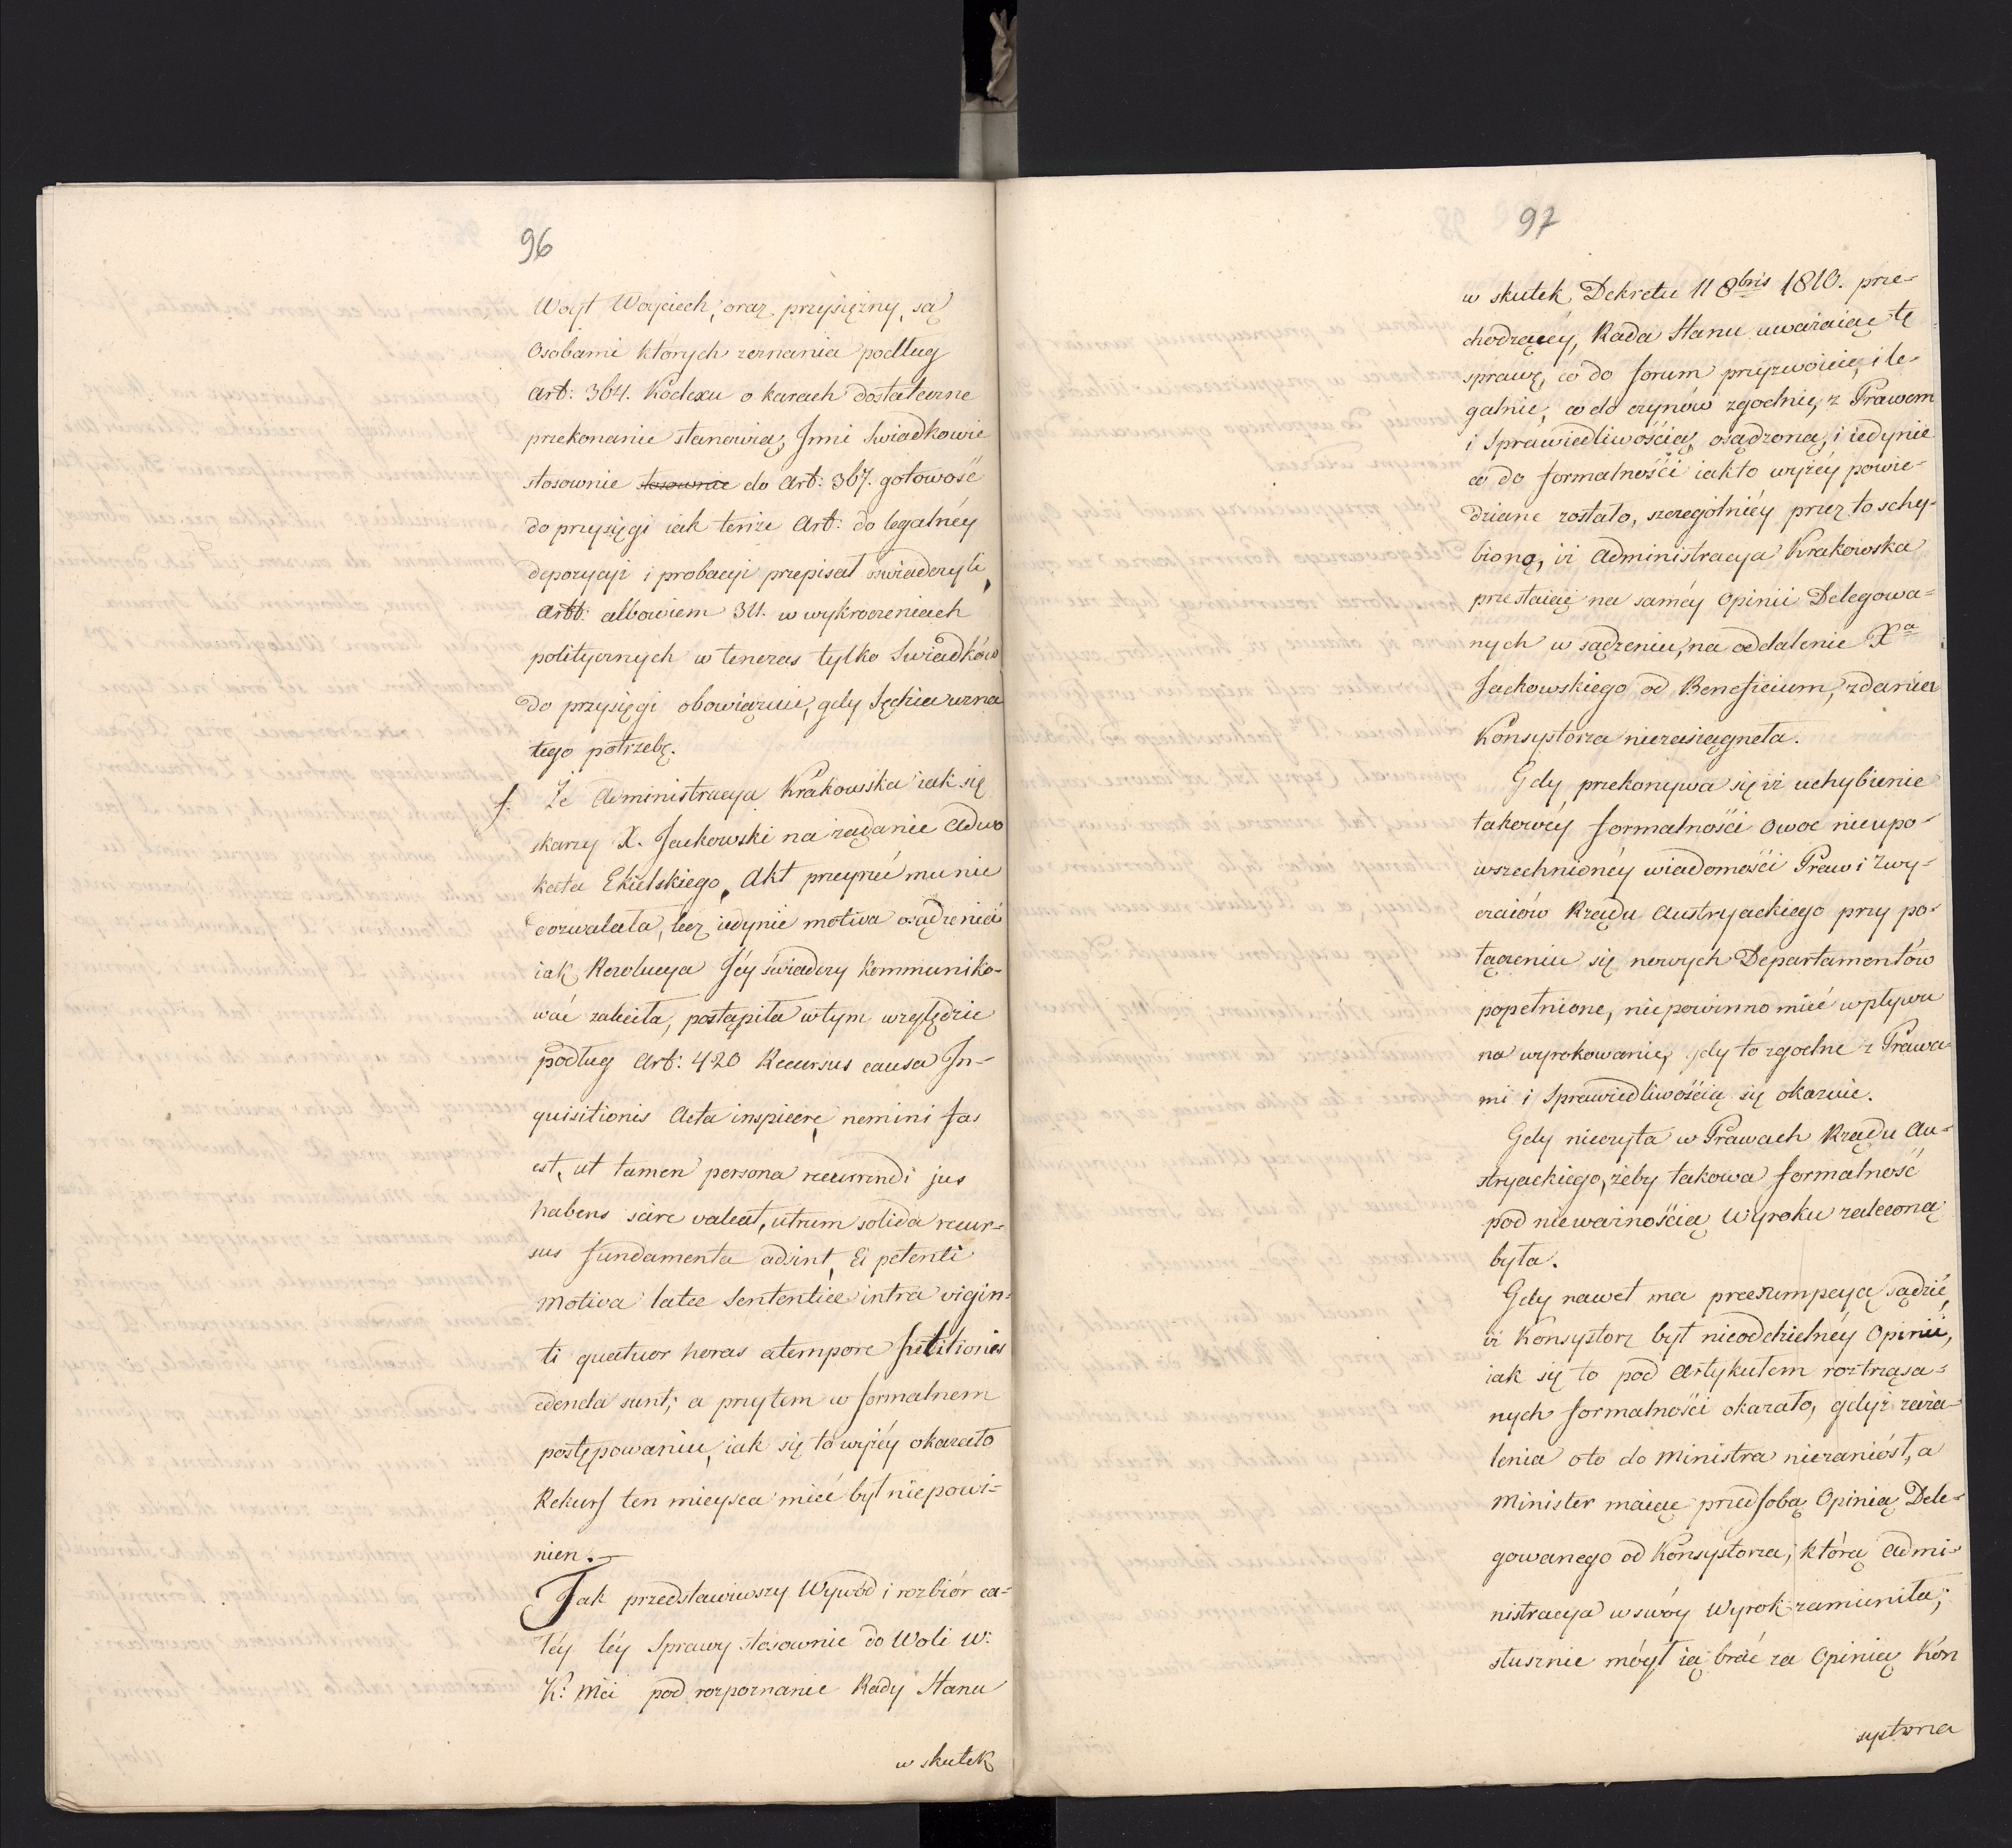 96
Woyt Woyciech, oraz przysiężny, są
Osobami których zeznania podług
Art: 364. Kodexu o karach dostateczne
przekonanie stanowią, Inni Swiadkowie
stosownie stosownie do Art: 367. gotowość
do przysięgi iak tenże Art: do legalnéy
depozycyi i probacyi przepisał oswiadczyli,
Artt: albowiem 311. w wykroczeniach
politycznych w tenczas tylko Swiadków
do przysięgi obowięzuie, gdy Sędzia uzna
tego potrzebę.
f. Że Administracya Krakowska iak się
skarzy X. Jackowski na żądanie Adwo
kata Ekielskiego, Akt przeyrzéć mu nie
dozwalała, lecz iedynie motiva osądzenia
iak Rezolucya Jéy świadczy kommuniko-
wać zaleciła, postąpiła w tym względzie
podług Art: 420 Recursus causa In-
quisitionis Acta inspicere nemini fas
est, ut tamen persona recurrendi jus
habens scire valeat, utrum solida recur-
sus fundamenta adsint, Ei petenti
Motiva latæ Sententiæ intra vigin-
ti quatuor horas a tempore petitionis
edenda sunt; a przytem w formalnem
postępowaniu, iak się to wyżéy okazało
Rekurs ten mieysca mieć był niepowi-
nien.
Jak przedstawiwszy Wywód i rozbiór ca-
łéy téy Sprawy stosownie do Woli W:
K: Mci pod rozpoznanie Rady Stanu
w skutek
97
w skutek Dekretu 11 8bris 1810. prze-
chodzącéy, Rada Stanu uważaiąc tę
sprawę, co do forum przyzwoicie, i le-
galnie, co do czynów zgodnie, z Prawem
i Sprawiedliwością, osądzoną, i iedynie
co do formalności iakto wyżéy powie-
dziane zostało, szczególniéy przez to schy-
bioną, iż Administracya Krakowska
przestaiąc na saméy Opinii Delegowa-
nych w sądzeniu, na oddalenie Xa
Jackowskiego od Beneficium, zdania
Konsystorza niezasiągneła.
Gdy przekonywa się iż uchybienie
takowéy formalności Owoc nieupo-
wszechnionéy wiadomości Praw i Zwy-
czaiów Rządu Austryackiego przy po-
łączeniu się nowych Departamentów
popełnione, niepowinno mieć wpływu
na wyrokowanie, gdy to zgodne z Prawa-
mi i Sprawiedliwością się okazuie.
Gdy nieczyta w Prawach Rządu Au-
stryackiego, żeby takowa formalność
pod nieważnością Wyroku zaleconą
była.
Gdy nawet ma prezumpcyą sądzić,
iż Konsystorz był nieoddzielnéy Opinii,
iak się to pod Artykułem roztrząsa-
nych formalności okazało, gdyż zaża-
lenia oto do Ministra niezaniósł, a
Minister maiąc przed sobą Opinią Dele-
gowanego od Konsystorza, którą Admi-
nistracya w swóy Wyrok zamieniła,
słusznie mógł ią brać za Opinią Kon
systorza